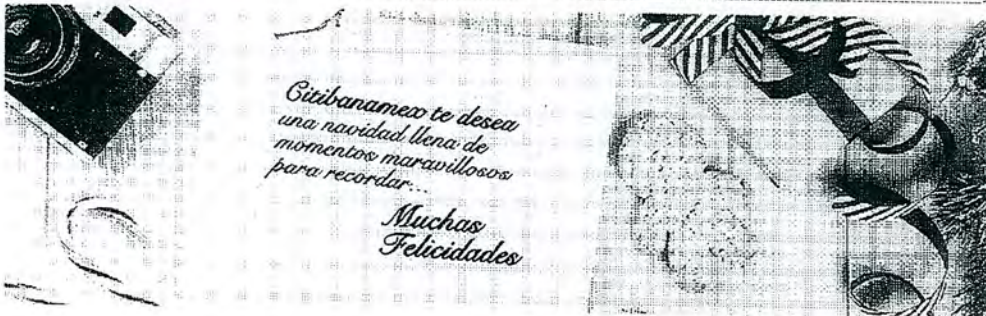 Citibanamex te desea
una navidad llena de
momentos maravillosos
para recordar...
Muchas
Felicidades